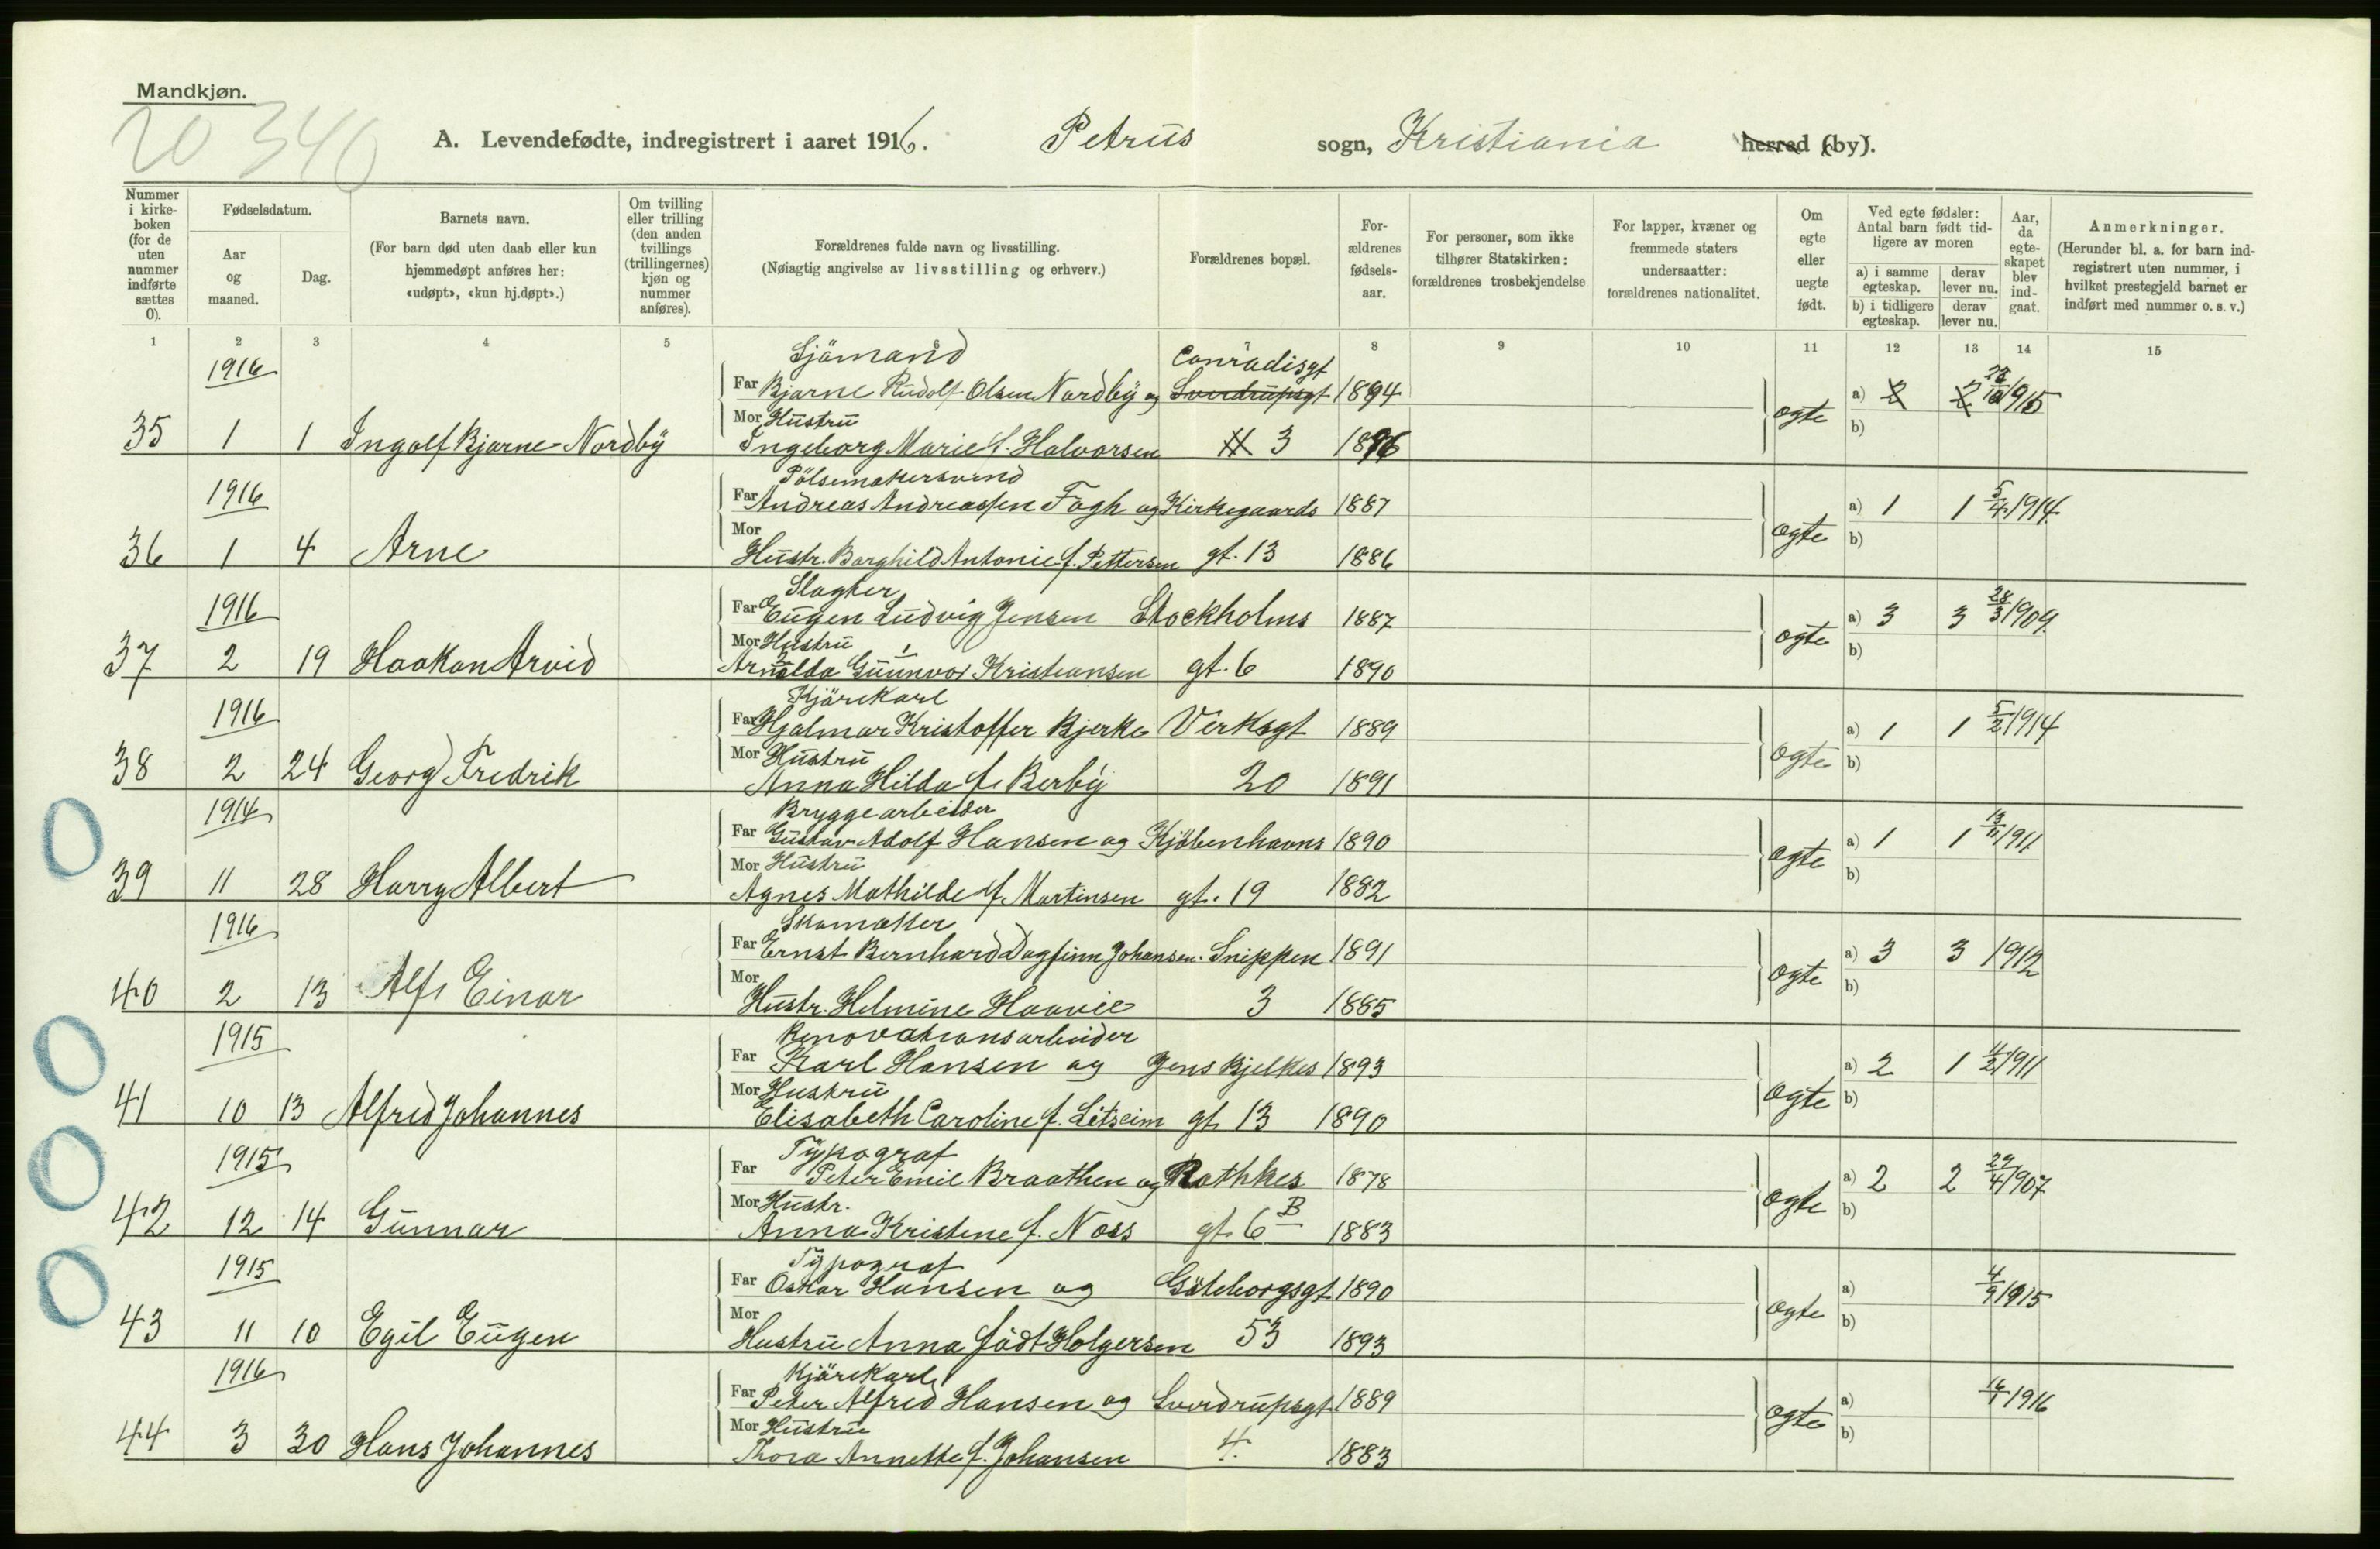 Mandkjøn.
20 340
A. Levendefødte, indregistrert i aaret 1916. Petrus sogn, Kristiania herred (by).
Nummer i kirkeboken (for de uten nummer indførte sættes 0).
Fødselsdatum.
Aar og maaned.
Dag.
Barnets navn.
(For barn død uten daab eller kun hjemmedøpt anføres her: «udøpt», «kun hj.døpt».)
Om tvilling eller trilling (den anden tvillings (trillingernes) kjøn og nummer anføres).
Forældrenes fulde navn og livsstilling.
(Nøiagtig angivelse av livsstilling og erhverv.)
Forældrenes bopæl.
Forældrenes fødselsaar.
For personer, som ikke tilhører Statskirken: forældrenes trosbekjendelse
For lapper, kvæner og fremmede staters undersaatter: forældrenes nationalitet.
Om egte eller uegte født.
Ved egte fødsler: Antal barn født tidligere av moren
a) i samme egteskap. derav lever nu.
b) i tidligere egteskap. derav lever nu.
Aar, da egteskapet blev indgaat.
Anmerkninger.
(Herunder bl. a. for barn indregistrert uten nummer, i hvilket prestegjeld barnet er indført med nummer o. s. v.)
1 2 3 4 5 6 7 8 9 10 11 12 13 14 15
1916 Sjömand Conradisgt
Far Bjarne Rudolf Olsen Nordby og Sverdrupsgt 1894 a) 2 2 1915
Mor Hustru ogte b)
35 1 1 Ingolf Bjarne Nordby Ingeborg Marie f. Halvorsen 11 3 1896
1916 Pölsemakersvend
Far Andreas Andreassen Fagh og Kirkegaards 1887 a) 1 1 5/4 1914
Mor ogte b)
36 1 4 Arne Hustr. Borghild Antonie f. Pettersen gt. 13 1886
1916 Slagter
Far Eugen Ludvig Jensen Stockholms 1887 a) 3 3 28/3 1909
Mor Hustru ogte b)
37 2 19 Haakon Arvid Arnalda Gunnvor Kristiansen gt. 6 1890
1916 Kjörekarl
Far Hjalmar Kristoffer Bjerke Verksgt 1889 a) 1 1 5/2 1914
Mor Hustru ogte b)
38 2 24 Georg Fredrik Anna Hilda f. Berby 20 1891
1914 Bryggearbeider
Far Gustav Adolf Hansen og Kjöbenhavns 1890 a) 1 1 13/11 1911
Mor Hustru ogte b)
39 11 28 Harry Albert Agnes Mathilde f. Martinsen gt. 19 1882
1916 Skomaker
Far Ernst Bernhard Dagfinn Johansen. Snippen 1891 a) 3 3 1912
Mor ogte b)
40 2 13 Alf Einar Hustr. Helmine Haavie 3 1885
1915 Renovationsarbeider
Far Karl Hansen og Jens Bjelkes 1893 a) 2 1 4/2 1911
Mor Hustru ogte b)
41 10 13 Alfred Johannes Elisabeth Caroline f. gt. 13 1890
1915 Typograf
Far Peter Emil Braathen og Rathkes 1878 a) 2 2 29/4 1907
Mor Hustr. ogte b)
42 12 14 Gunnar Anna Kristine f. Noss gt. 6 B 1883
1915 Typograf
Far Oskar Hansen og Göteborgsgt 1890 a) 4/9 1915
Mor ogte b)
43 11 10 Egil Eugen Hustru Anna födt Holgersen 53 1893
1916 Kjörekarl
Far Peter Alfred Hansen og Sverdrupsgt. 1889 a) 1916
Mor Hustru ogte b)
44 3 30 Hans Johannes Thora Annette f. Johansen 4. 1883